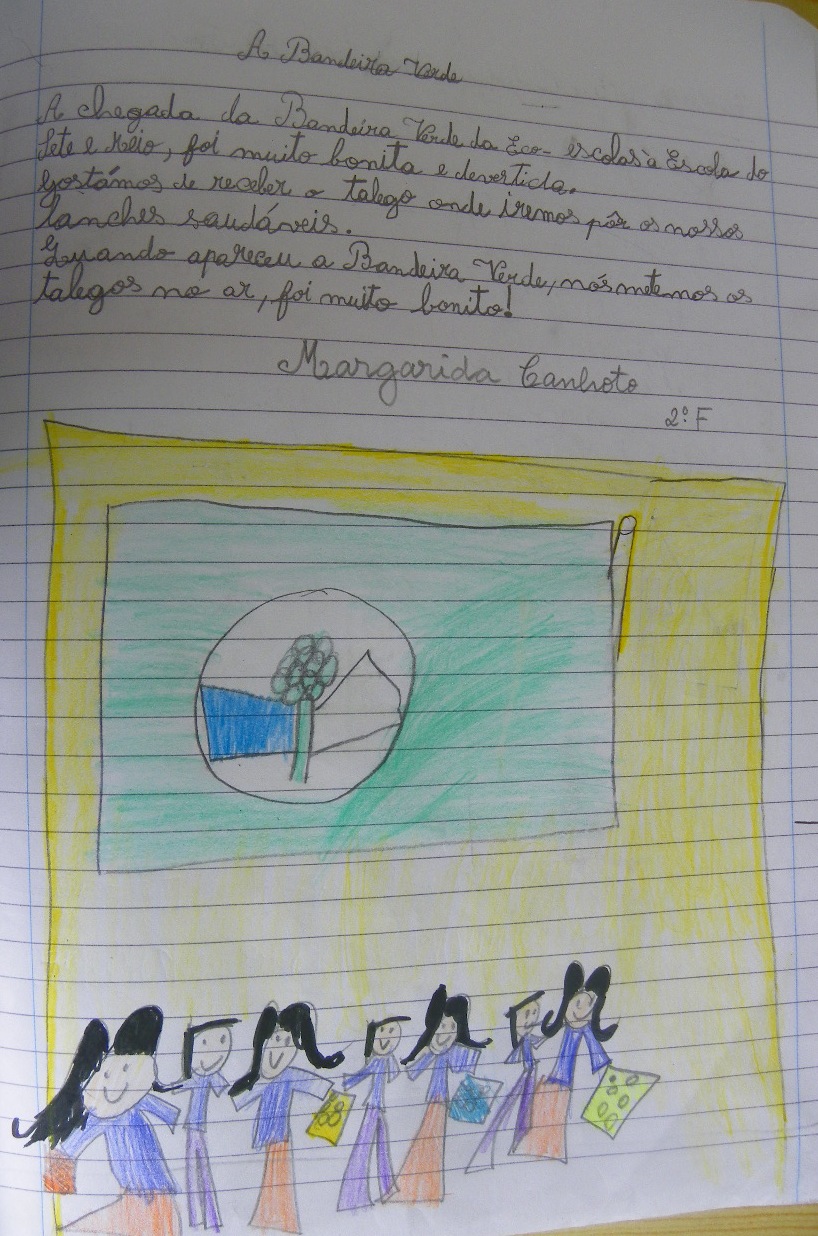 A Bandeira Verde
A chegada da Bandeira Verde da Eco-escolas à Escola do
Sete e Meio, foi muito bonita e devertida.
Gostámos de receber o talego onde iremos pôr os nossos
lanches saudáveis.
Quando apareceu a Bandeira Verde, nós metemos os
talegos no ar, foi muito bonito!
Margarida Canhoto
2º F